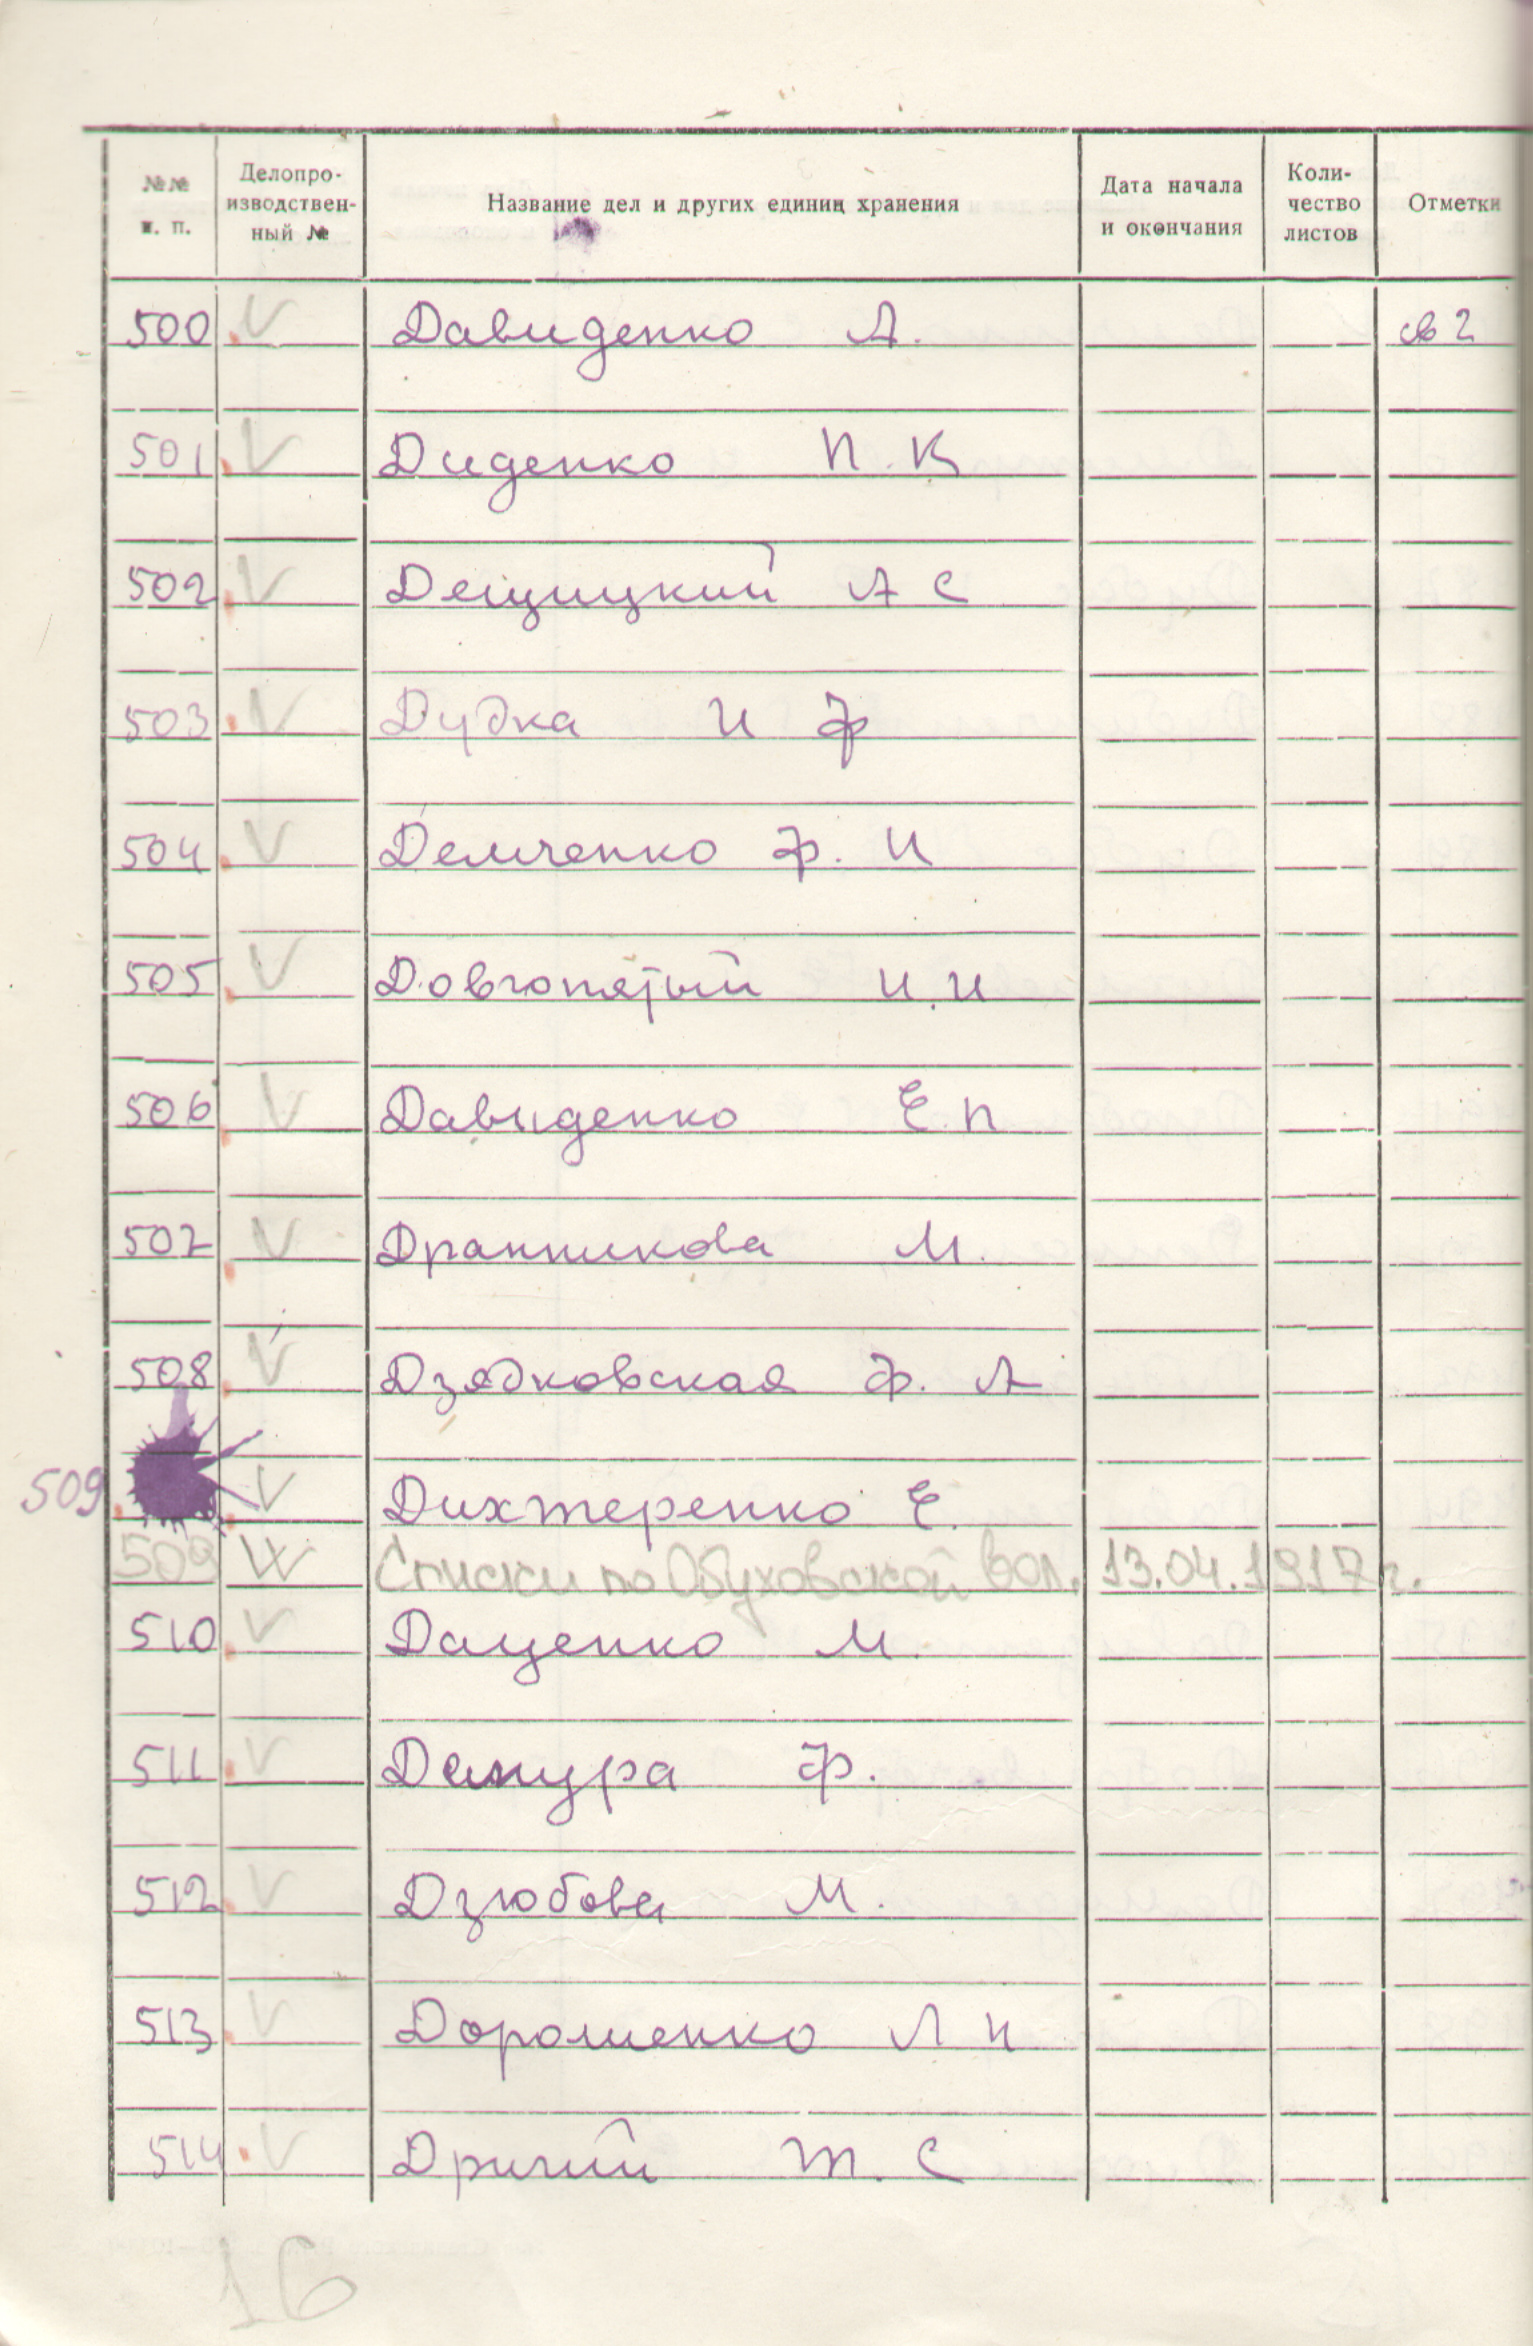 №№ п. п. Делопроизводственный № Название дел и других единиц хранения Дата начала и окончания Количество листов Отметки
500 V Давиденко А. св 2
501 V Диденко П. К
502 V Дещицкий А С
503 V Дудка И Ф
504 V Демченко Ф. И
505 V Довгопятый И. И
506 V Давиденко Е. П
507 V Дранникова М.
508 V Дзядковская Ф. А
509 V Дихтеренко Е.
509 W Списки по Обуховской вол. 13.04.1917 г.
510 V Даценко М.
511 V Ф.
512 V Дзюбова М.
513 V Дорошенко Л И
514 V Т. С
16